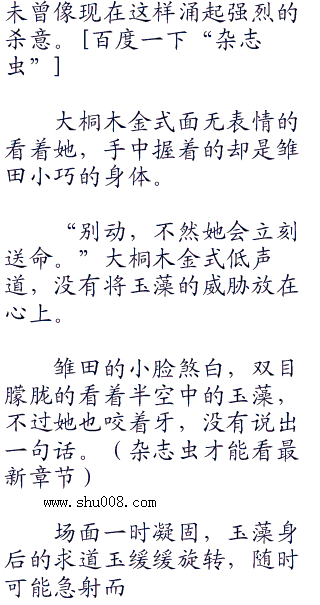 未曾像现在这样涌起强烈的
杀意。[百度一下“杂志
虫”]
大桐木金式面无表情的
看着她，手中握着的却是雏
田小巧的身体。
“别动，不然她会立刻
送命。”大桐木金式低声
道，没有将玉藻的威胁放在
心上。
雏田的小脸煞白，双目
朦胧的看着半空中的玉藻，
不过她也咬着牙，没有说出
一句话。（杂志虫才能看最
新章节）
www.shu008.com
场面一时凝固，玉藻身
后的求道玉缓缓旋转，随时
可能急射而